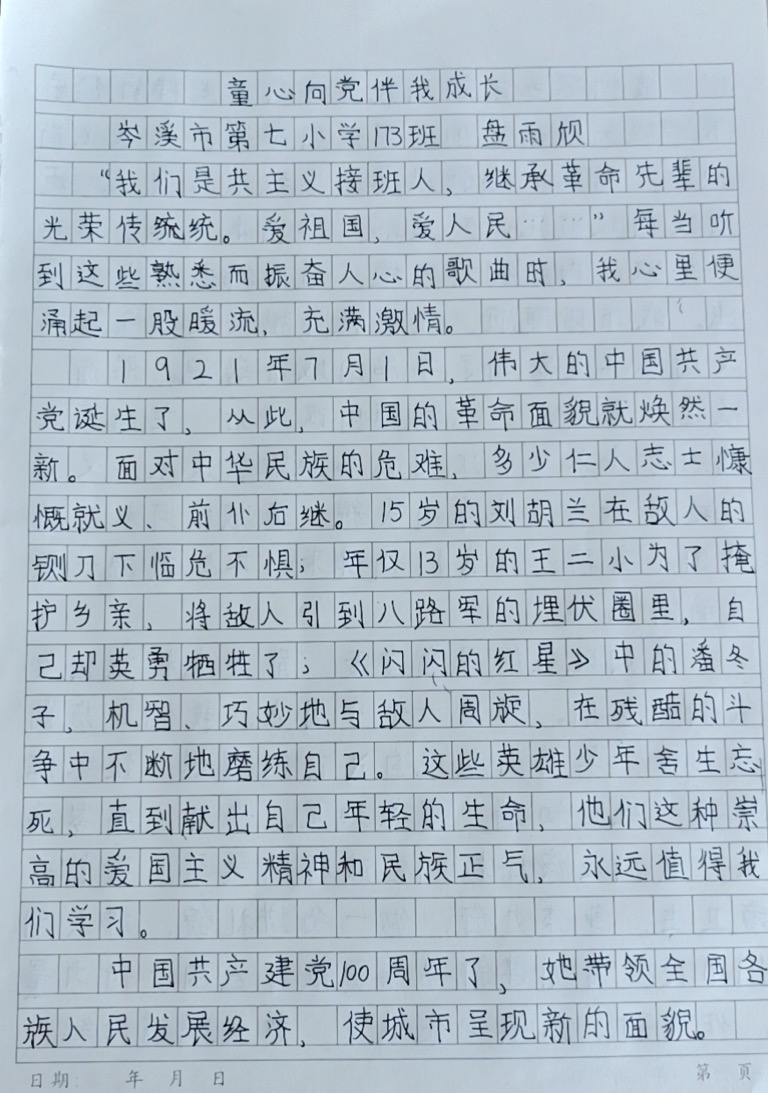 童心向党伴我成长
岑溪市第七小学173班 盘雨颀
“我们是共主义接班人，继承革命先辈的
光荣传统统。爱祖国，爱人民……”每当听
到这些熟悉而振奋人心的歌曲时，我心里便
涌起一股暖流，充满激情。
1921年7月1日，伟大的中国共产
党诞生了，从此，中国的革命面貌就焕然一
新。面对中华民族的危难，多少仁人志士慷
慨就义、前仆后继。15岁的刘胡兰在敌人的
铡刀下临危不惧；年仅13岁的王二小为了掩
护乡亲，将敌人引到八路军的埋伏圈里，自
己却英勇牺牲了；《闪闪的红星》中的潘冬
子，机智、巧妙地与敌人周旋，在残酷的斗
争中不断地磨练自己。这些英雄少年舍生忘
死，直到献出自己年轻的生命，他们这种崇
高的爱国主义精神和民族正气，永远值得我
们学习。
中国共产建党100周年了，她带领全国各
族人民发展经济，使城市呈现新的面貌。
日期： 年 月 日 第 页